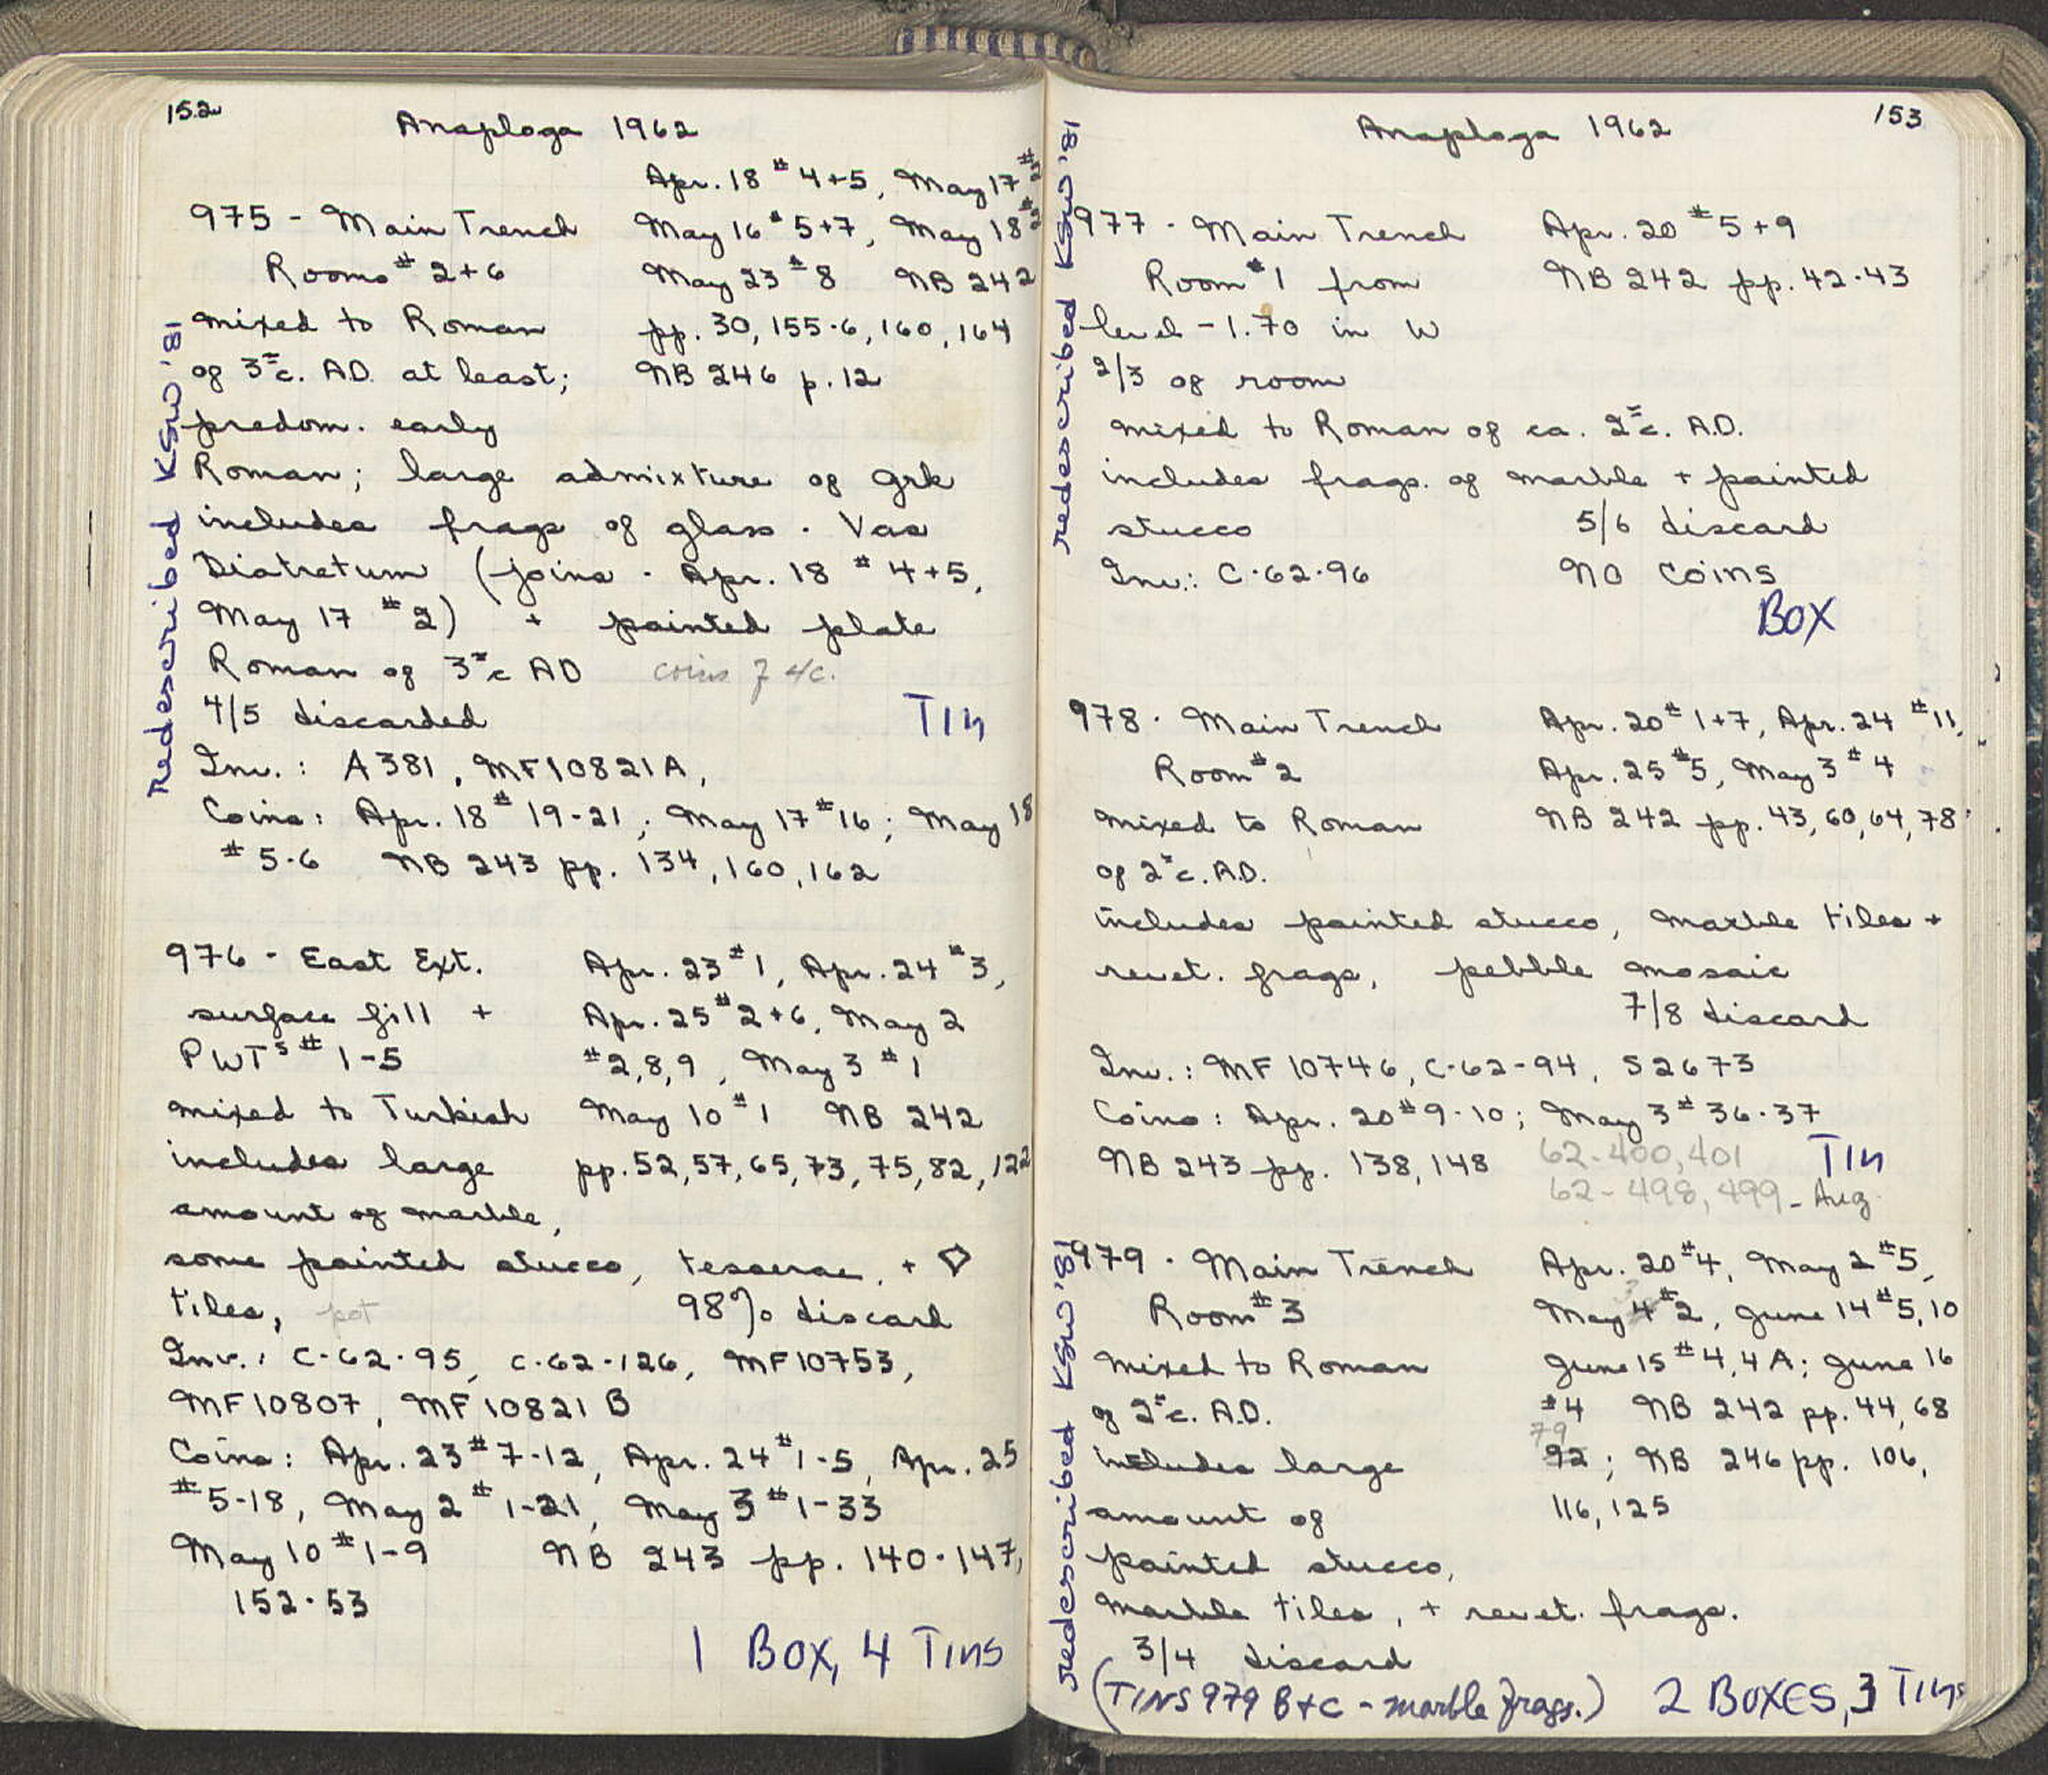 152
Anaploga 1962
Apr. 18 # 4+5, May 17 #2
975 - Main Trench May 16 # 5+7, May 18 #2
Rooms # 2+6 May 23 # 8 NB 242
mixed to Roman pp. 30, 155-6, 160, 164
of 3rd c. A.D. at least; NB 246 p. 12
predom. early
Roman; large admixture of Grk
includes frags of glass - Vas
Diatretum (joins - Apr. 18 # 4+5,
May 17 # 2) + painted plate
Roman of 3rd c AD coins of 4c.
4/5 discarded TIN
Inv.: A 381, MF 10821 A,
Coins: Apr. 18 # 19-21; May 17 # 16; May 18
# 5-6 NB 243 pp. 134, 160, 162
Redescribed KSW '81
976 - East Ext. Apr. 23 # 1, Apr. 24 # 3,
surface fill + Apr. 25 # 2+6, May 2
PWTs # 1-5 # 2,8,9, May 3 # 1
mixed to Turkish May 10 # 1 NB 242
includes large pp. 52, 57, 65, 73, 75, 82, 122
amount of marble,
some painted stucco, tesserae, + ◇
tiles, pot 98% discard
Inv.: C-62-95, C-62-126, MF 10753,
MF 10807, MF 10821 B
Coins: Apr. 23 # 7-12, Apr. 24 # 1-5, Apr. 25
# 5-18, May 2 # 1-21, May 3 # 1-33
May 10 # 1-9 NB 243 pp. 140-147,
152-53
1 BOX, 4 TINS
153
Anaploga 1962
977 - Main Trench Apr. 20 # 5+9
Room # 1 from NB 242 pp. 42-43
level -1.70 in W
2/3 of room
mixed to Roman of ca. 2nd c. A.D.
includes frags. of marble + painted
stucco 5/6 discard
Inv.: C-62-96 NO COINS
BOX
redescribed KSW '81
978 - Main Trench Apr. 20 # 1+7, Apr. 24 # 11,
Room # 2 Apr. 25 # 5, May 3 # 4
mixed to Roman NB 242 pp. 43, 60, 64, 78
of 2nd c. A.D.
includes painted stucco, marble tiles +
revet. frags, pebble mosaic
7/8 discard
Inv.: MF 10746, C-62-94, S 2673
Coins: Apr. 20 # 9-10; May 3 # 36-37
NB 243 pp. 138, 148 62-400, 401 TIN
62-498, 499 - Aug
979 - Main Trench Apr. 20 # 4, May 2 # 5,
Room # 3 May 4 # 2, June 14 # 5, 10
mixed to Roman June 15 # 4, 4A; June 16
of 2nd c. A.D. # 4 NB 242 pp. 44, 68
79
includes large 92; NB 246 pp. 106,
amount of 116, 125
painted stucco,
marble tiles, + revet. frags.
3/4 discard
(TINS 979 B+C - marble frags.) 2 BOXES, 3 TINS
redescribed KSW '81